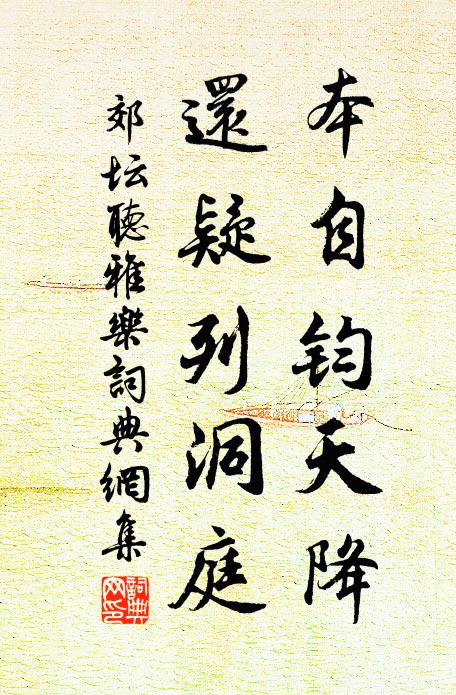 本自鈞天降
還疑列洞庭
郊坛聽雅樂詞典網集
詞典
网印